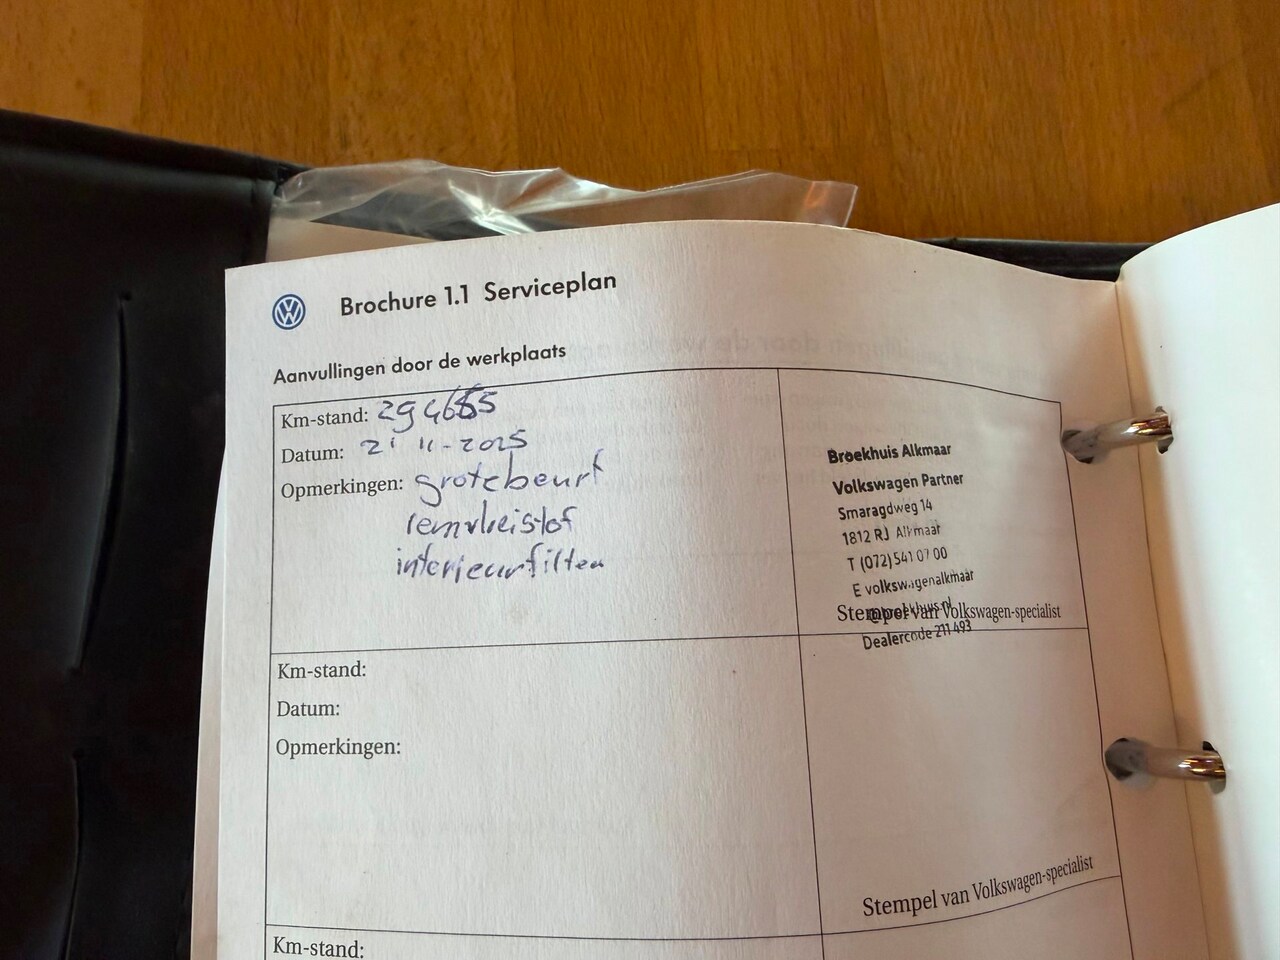 Brochure 1.1 Serviceplan
Aanvullingen door de werkplaats
Km-stand:
Datum: 21 11-2025
Opmerkingen: grotebeurt
remvloeistof
interieurfilter
Broekhuis Alkmaar
Volkswagen Partner
Smaragdweg 14
1812 RJ Alkmaar
T (072) 541 07 00
E volkswagenalkmaar
@broekhuis.nl
Stempel van Volkswagen-specialist
Dealercode 211 493
Km-stand:
Datum:
Opmerkingen:
Stempel van Volkswagen-specialist
Km-stand: